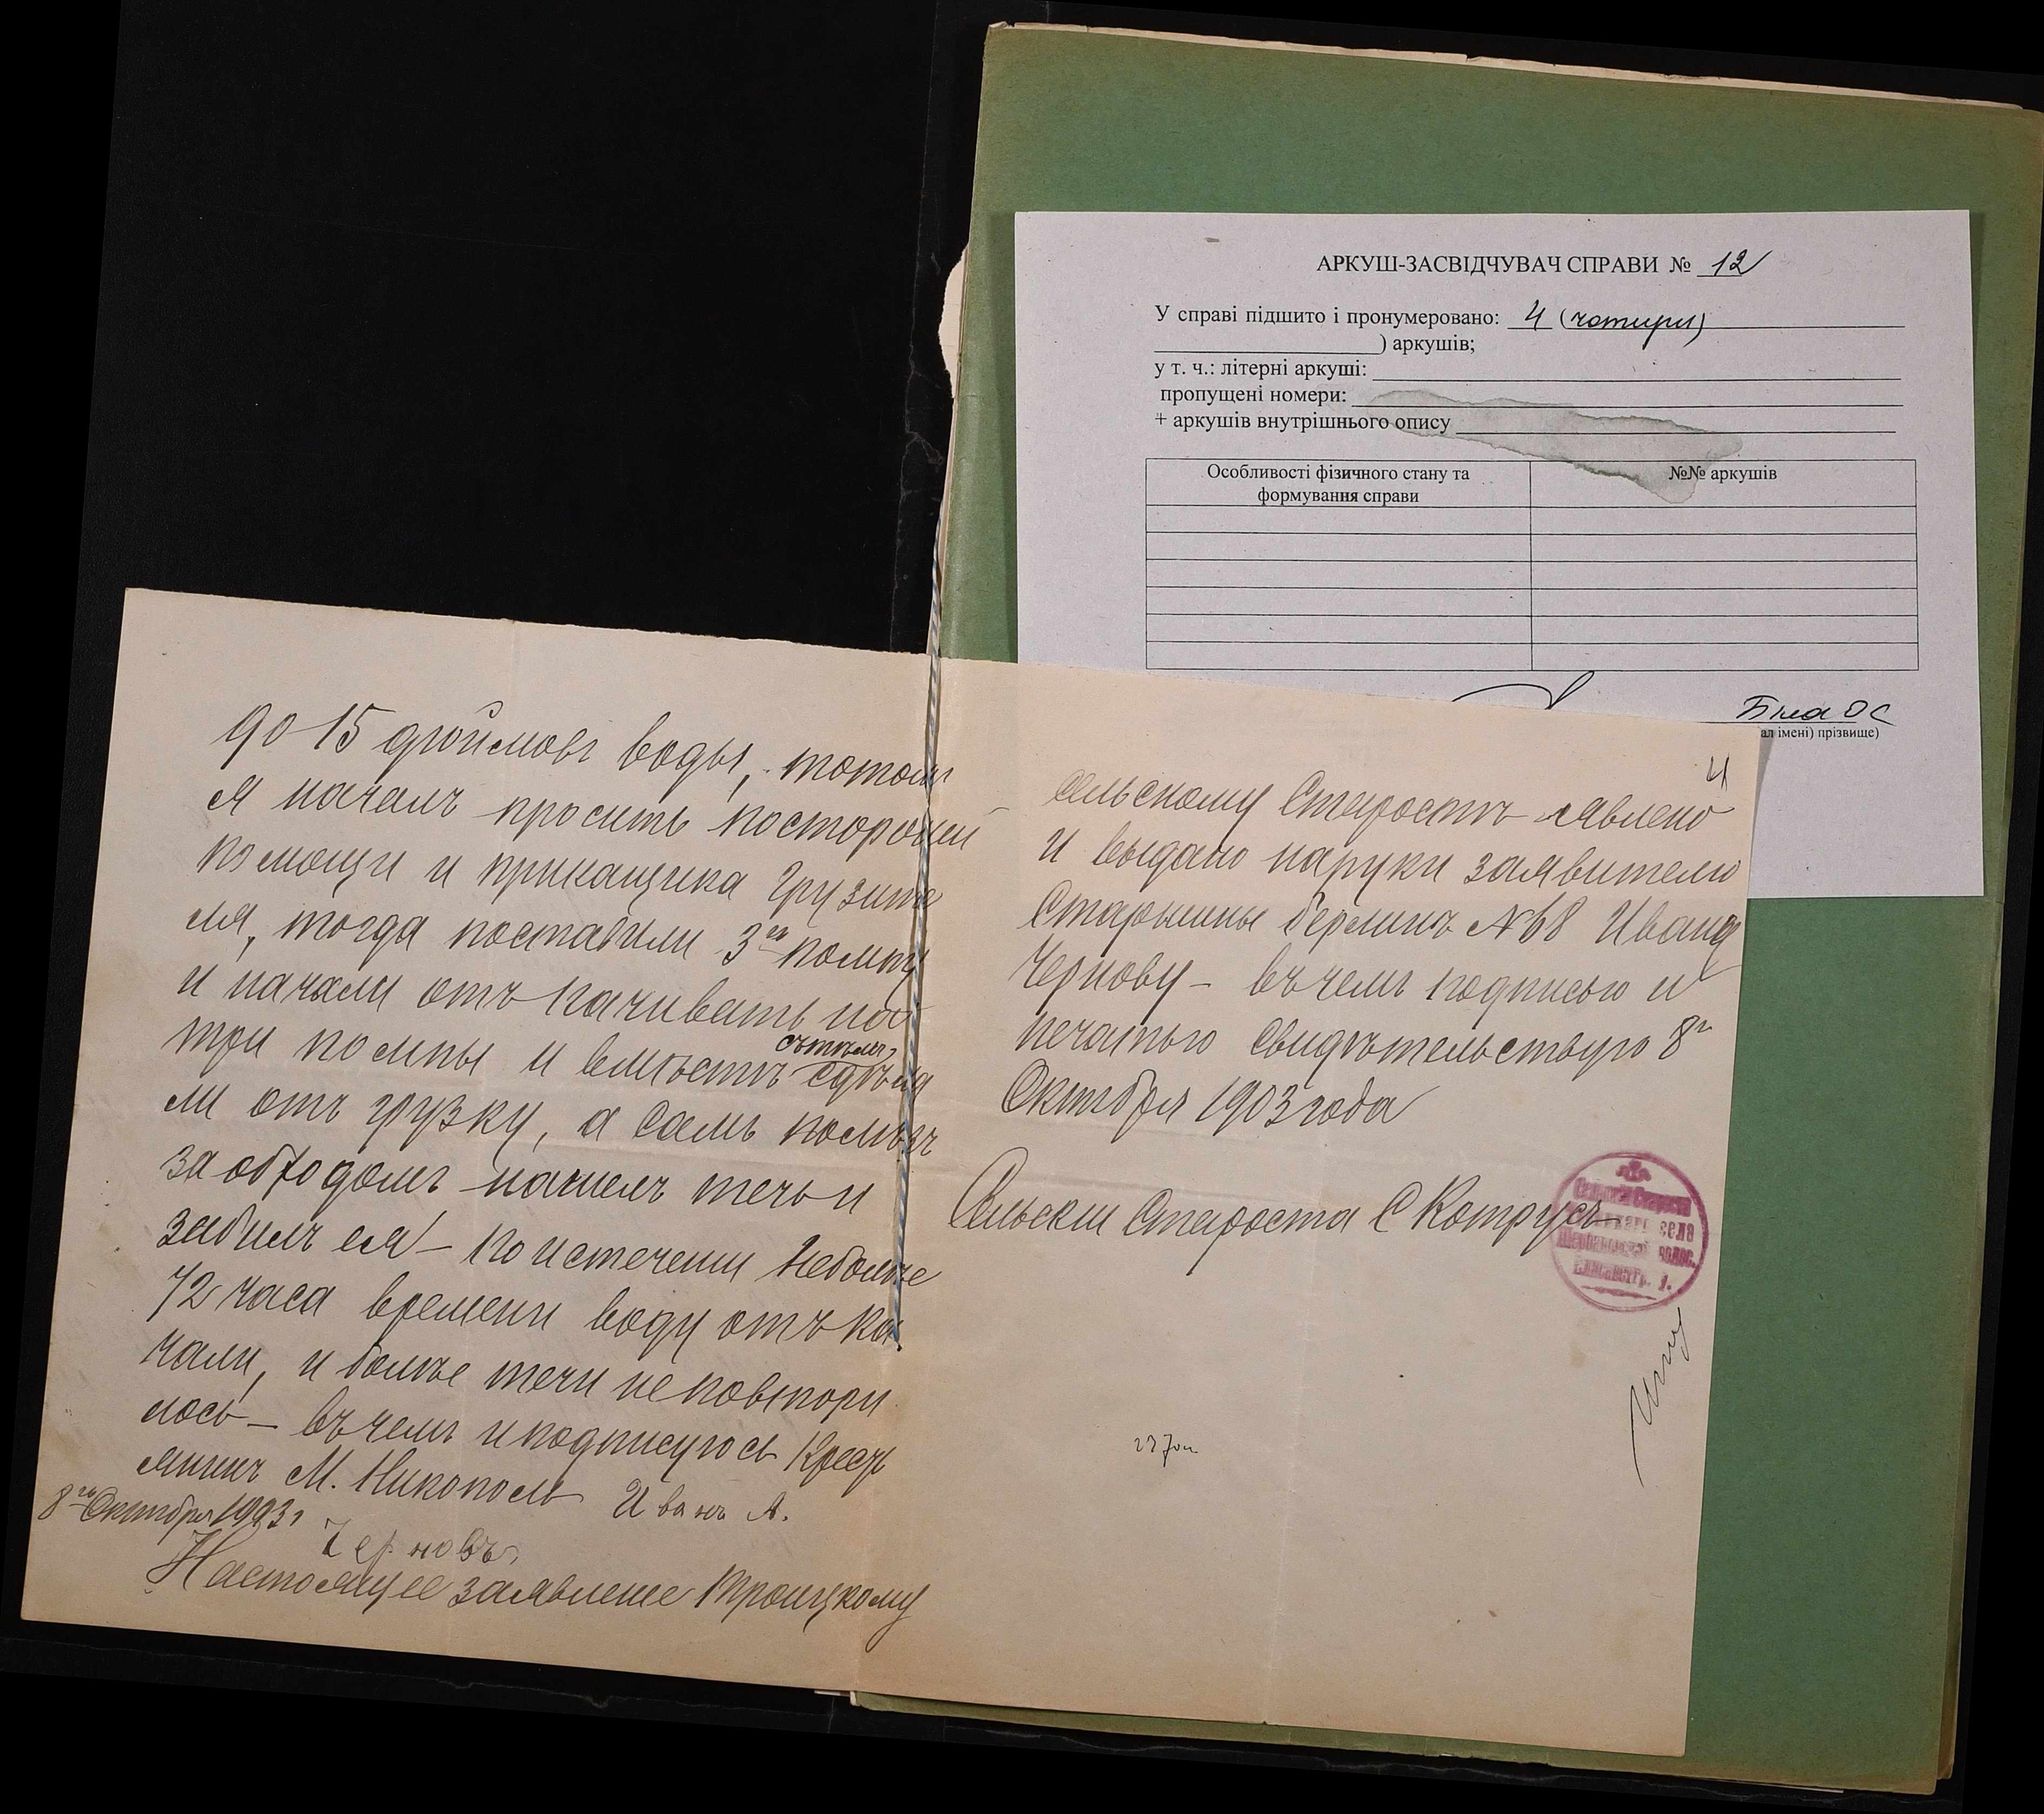 до 15 дюймовъ воды, потомъ
я началъ просить посторонней
помощи и прикащика грузите
ля, тогда поставили 3ю помпу
и начали отъ качивать на
три помпы и вмѣстѣ сътѣмъ сдѣла
ли отъ грузку, а самъ полѣзъ
за обходомъ нашелъ течь и
забилъ ея — по истечении неболѣе
1/2 часа времени воду отъ ка
чали, и болѣе течи не повтори
лось — въ чемъ и подписуюсь Кресть
янинъ М. Никополь Иванъ А.
8го Октября 1903 г
Черновъ
Настоящее заявление Троицкому
4
сельскому Старостѣ явлено
и выдано наруки заявителю
Старшины берлинъ №68 Ивана
Чернову — въ чемъ подписью и
печатью свидѣтельствую 8го
Октября 1903 года
Сельский Староста С Котрусъ
Сельскій Староста
села
волос.
Елисаветгр. у.
АРКУШ-ЗАСВІДЧУВАЧ СПРАВИ № 12
У справі підшито і пронумеровано: 4 (чотири)
) аркушів;
у т. ч.: літерні аркуші:
пропущені номери:
+ аркушів внутрішнього опису
Особливості фізичного стану та
формування справи
№№ аркушів
Біла ОС
ал імені) прізвище)